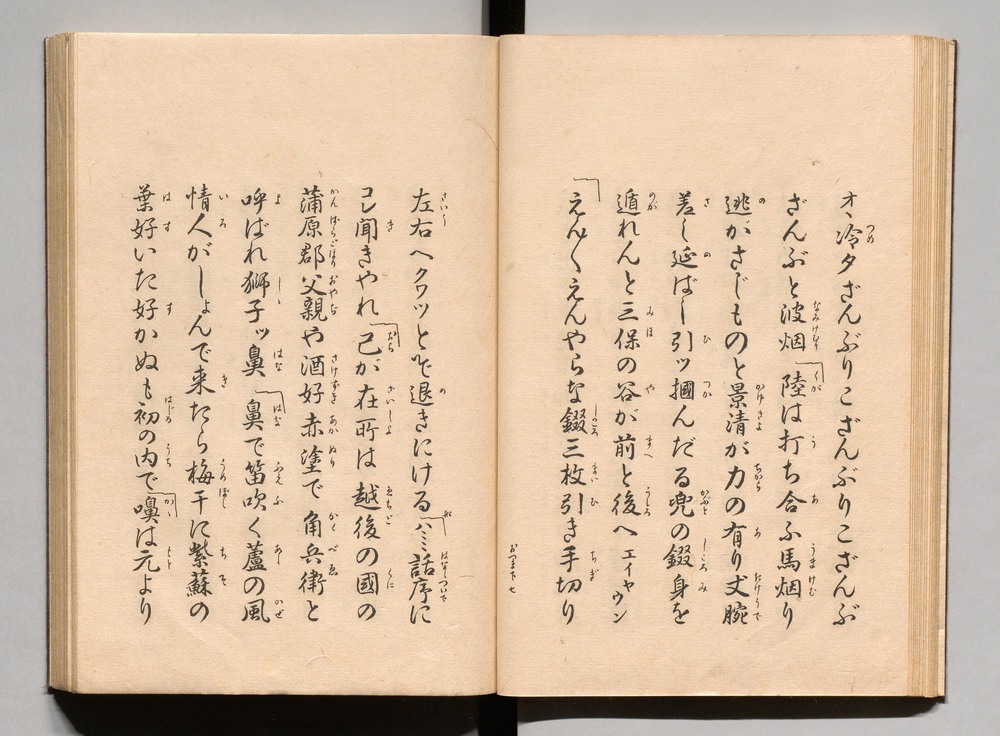 オヽ冷タざんぶりこざんぶりこざんぶ
ざんぶと波烟陸は打ち合ふ馬烟り
逃がさじものと景清が力の有り丈腕
差し延ばし引ッ摑んだる兜の錣身を
遁れんと三保の谷が前と後へエイヤウン
えん〳〵えんやらな錣三枚引き手切り
左右へクワッと退きにける話序に
聞きやれ己が在所は越後の國の
蒲原郡父親や酒好赤塗で角兵衛と
呼ばれ獅子ッ鼻鼻で笛吹く蘆の風
情人がしよんで来たら梅干に紫蘇の
葉好いた好かぬも初の内で嗅は元より